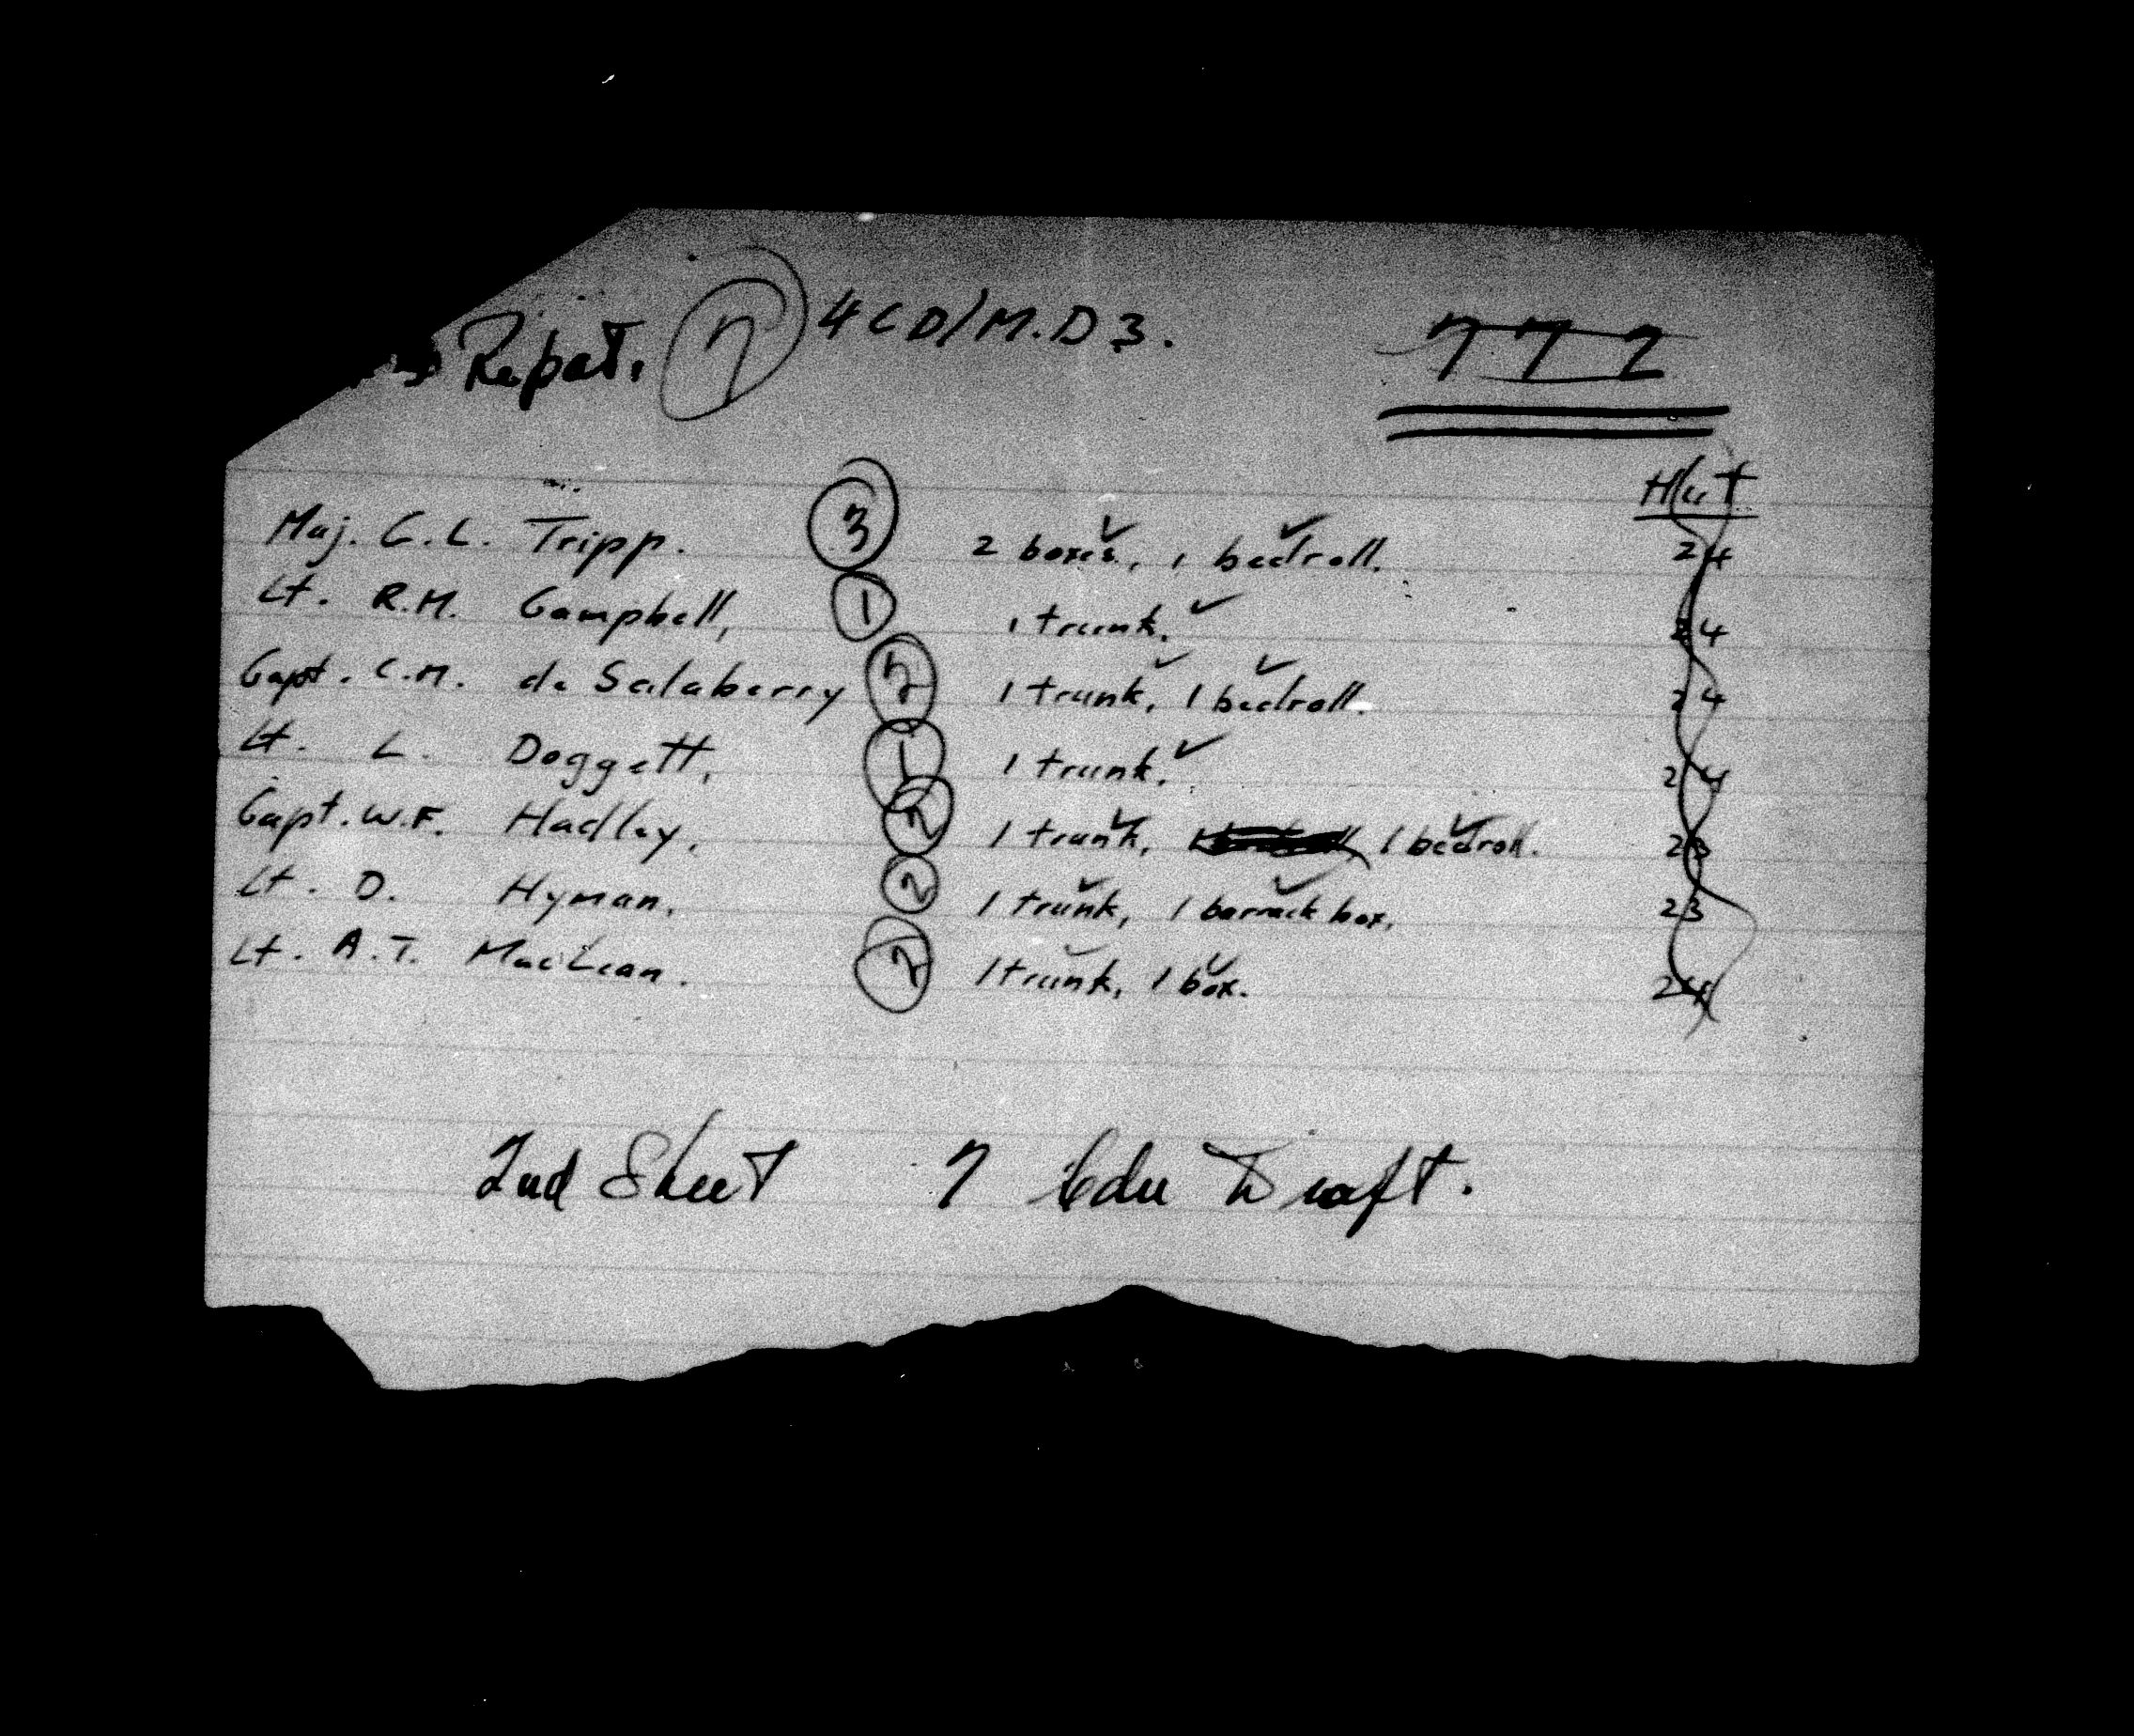 Repat. 7 4CD/M.D 3. 772
Hut
Maj. C.L. Tripp. 3 2 boxes, 1 bedroll. 24
Lt. R.M. Campbell, 1 1 trunk. 24
Capt. C.M. de Salaberry 2 1 trunk, 1 bedroll. 24
Lt. L. Doggett, 1 1 trunk. 24
Capt. W.F. Hadley, 2 1 trunk, 1 bedroll. 23
Lt. D. Hyman, 2 1 trunk, 1 barrack box. 23
Lt. A.T. MacLean. 2 1 trunk, 1 box. 24
2nd Sheet 7 Cdn Draft.